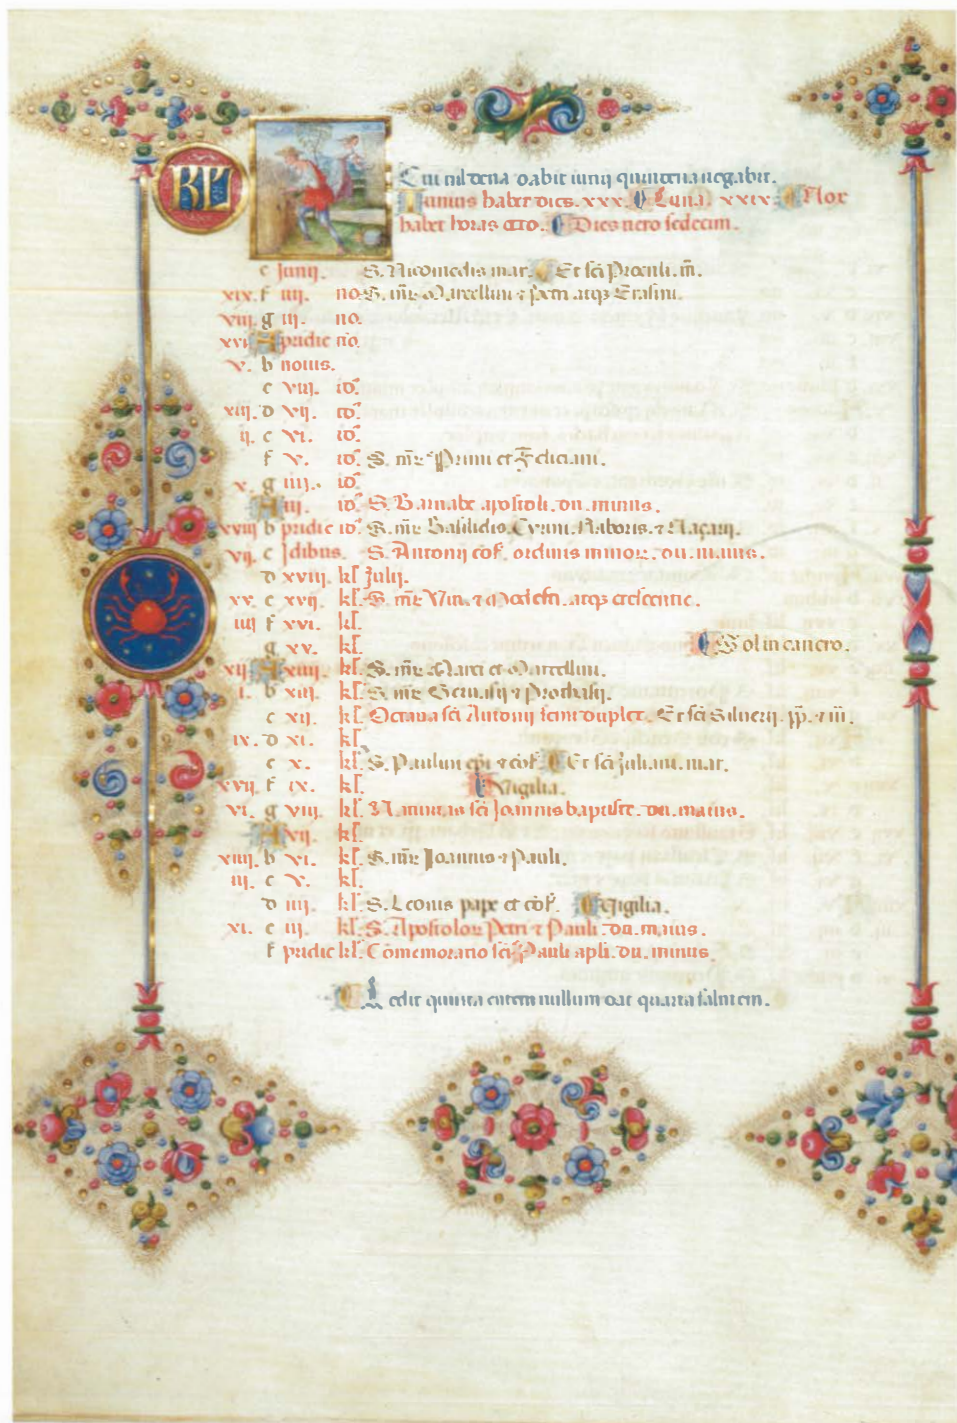 KL
Cui nil dena dabit iunij quindena negabit.
Iunius habet dies. xxx. Luna. xxix. Nox
habet horas octo. Dies uero sedecim.
e Junij. S. Nicomedis mar. Et sci Proculi. m̄.
xix. f iiij. no. S. m̄r. Marcellini ⁊ Petri atqꝫ Erasmi.
viij. g iij. no.
xvi. A pridie no.
v. b nonis.
c viij. id.
xiij. d vij. id.
ij. e vi. id.
f v. id. S. m̄r. Primi et Feliciani.
x. g iiij. id.
A iij. id. S. Barnabe apostoli. du. minus.
xviij b pridie id. S. m̄r. Basilidis. Cyrini. Naboris. ⁊ Naçarij.
vij. c Idibus. S. Antonij cof. ordinis minor. du. maius.
d xviij. kl. Julij.
xv. e xvij. kl. S. m̄r. Viti. ⁊ Modesti. atqꝫ crescentie.
iiij f xvi. kl.
g xv. kl. Sol in cancro.
xij. A xiiij. kl. S. m̄r. Marci et Marcellini.
i. b xiij. kl. S. m̄r. Geruasij ⁊ Prothasij.
c xij. kl. Octaua sci Antonij semiduplex. Et sci Siluerij. pp. ⁊ m̄.
ix. d xi. kl.
e x. kl. S. Paulini epi ⁊ cof. Et sci Juliani. mar.
xvij. f ix. kl. Vigilia.
vi. g viij. kl. Natiuitas sci Joannis baptiste. du. maius.
A vij. kl.
xiiij. b vi. kl. S. m̄r. Joannis ⁊ Pauli.
iij. c v. kl.
d iiij. kl. S. Leonis pape et cof. Vigilia.
xi. e iij. kl. S. Apostolor Petri ⁊ Pauli. du. maius.
f pridie kl. Comemoratio sci Pauli apli. du. minus.
Ledit quinta entem nullum dat quarta salutem.